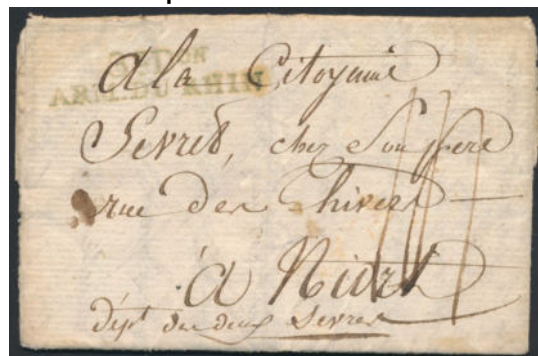 DON
ARM. DU RHIN
A la Citoyenne
Sevret, chez Son pere
rue des Thivers
à Niort
dépt des deux Sevres